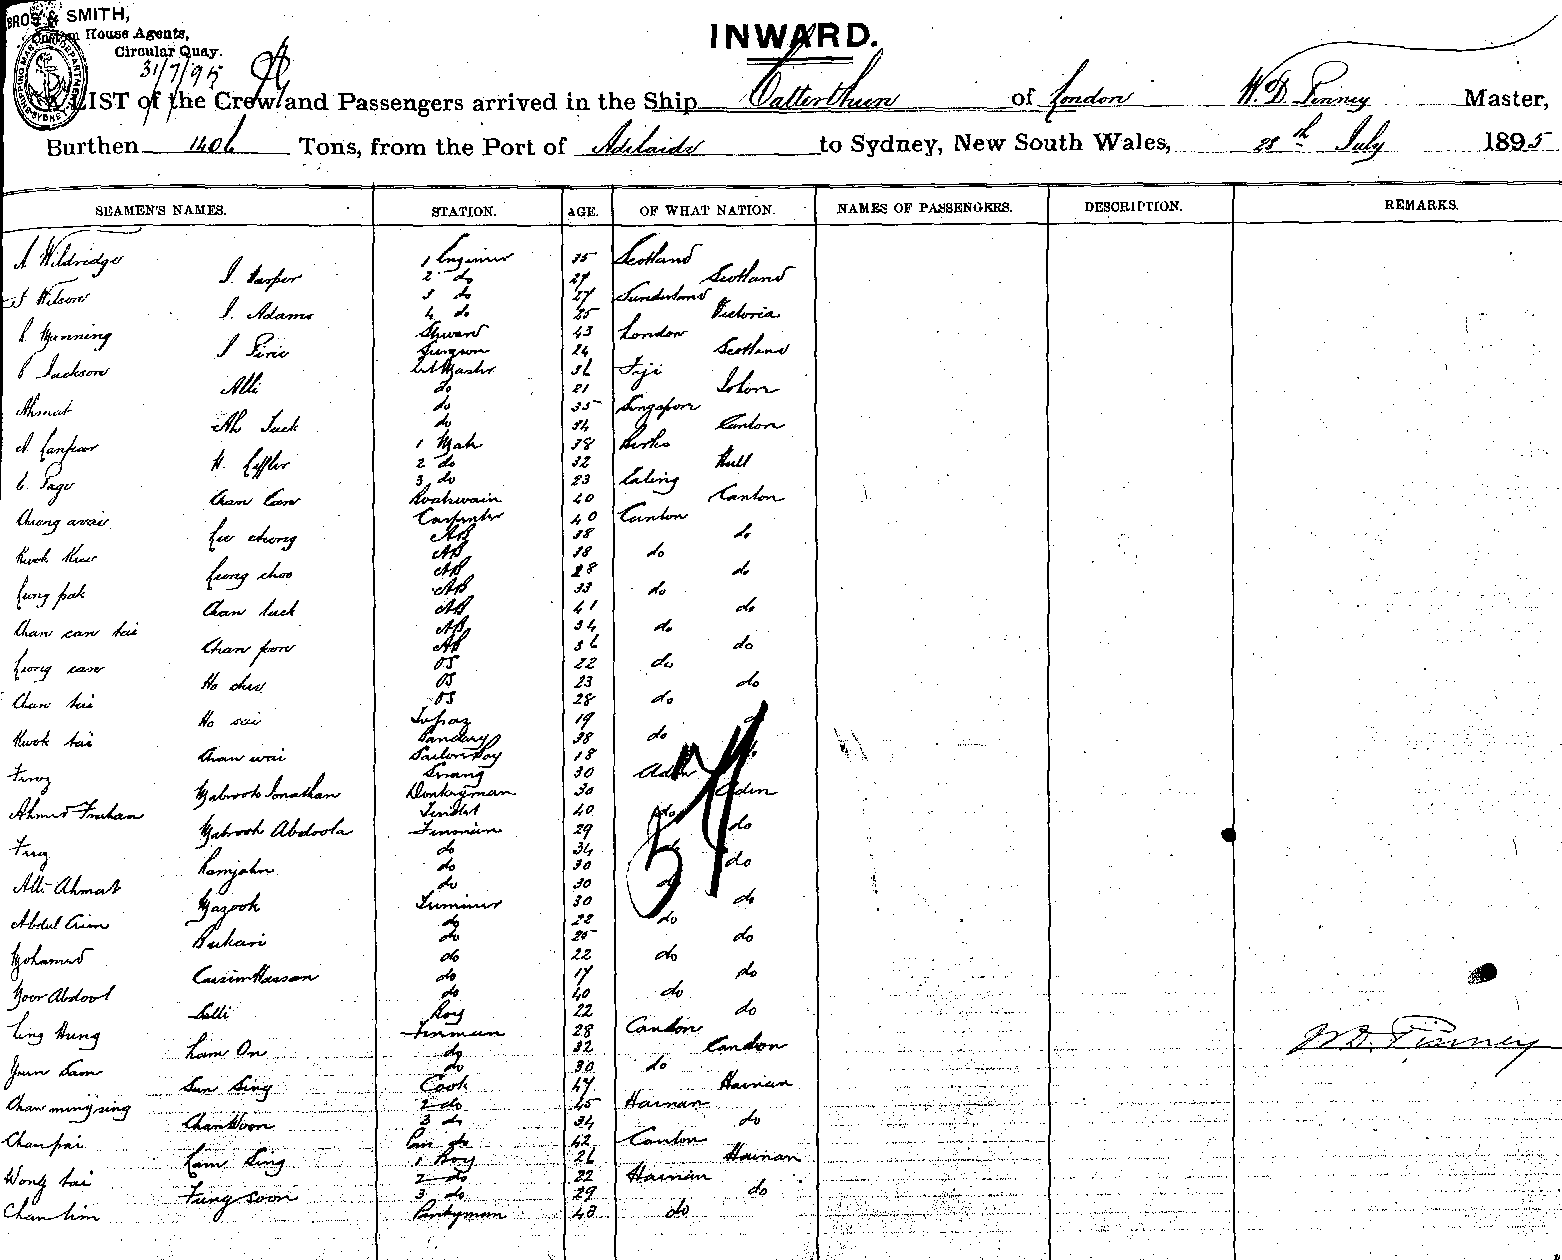 BROS & SMITH,
Custom House Agents,
Circular Quay.
31/7/95
INWARD.
A LIST of the Crew and Passengers arrived in the Ship Catterthun of London W.D. Pinney Master,
Burthen 1406 Tons, from the Port of Adelaide to Sydney, New South Wales, 28th July 1895
SEAMEN'S NAMES. STATION. AGE. OF WHAT NATION. NAMES OF PASSENGERS. DESCRIPTION. REMARKS.
A Wildridge 1 Engineer 35 Scotland
J. Harper 2 do 27 Scotland
J Wilson 3 do 27 Sunderland
J. Adams 4 do 25 Victoria
Manning Steward 43 London
J Pirie Surgeon 24 Scotland
Jackson 36 Fiji
Alli do 21
Ahmat do 35 Singapore
Ah Tuck do 34 Canton
A Lanfear 1 Mate 38 Berks
H. Leffler 2 do 32 Hull
C. Page 3 do 23 Ealing
Chan Can Boatswain 40 Canton
Cheong Carpenter 40 Canton
Lee cheong AB 38 do
Kwok AB 38 do
Leong choo AB 28 do
Leong pak AB 33 do
Chan tuck AB 41 do
Chan can tai AB 34 do
Chan poon AB 36 do
Leong can OS 22 do
Ho chee OS 23 do
Chan tai OS 28 do
Ho sai Topaz 19
Kwok tai 38 do
Chan wai Sailor Boy 18
Firoz Serang 30 Aden
Mabrook Jonathan Donkeyman 30 Aden
Ahmed Tindal 40 do
Mabrook Abdoola Fireman 29 do
do 34
Ramjahn do 30 do
Alli Ahmat do 30 do
Mazook Trimmer 30 do
Abdul do 22 do
Bukari do 25 do
Mohamed do 22 do
Cassim Hassan do 17 do
Noor Abdool do 40 do
Salli Boy 22 do
Ling Hung Fireman 28 Canton
Lam On do 32 Canton
Yuen Sam do 30 do
Sun Sing Cook 47 Hainan
Chan ming sing 2 do 45 Hainan
Chan Woon 3 do 34 do
Chan pai do 42 Canton
Lam Sing 1 Boy 26 Hainan
Wong tai 2 do 22 Hainan
Fung soon 3 do 29 do
Chan him Pantryman 43 do
54
W.D. Pinney